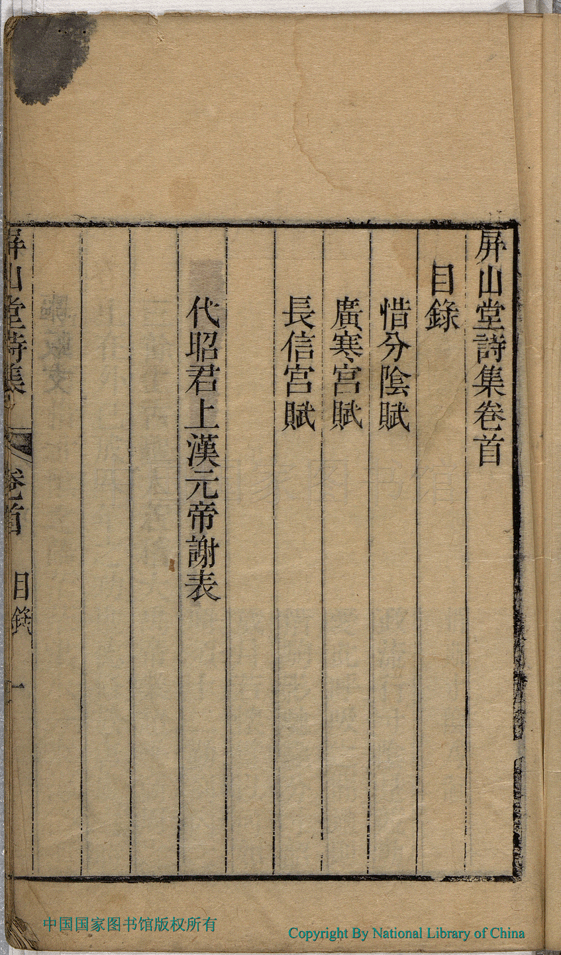 屏山堂詩集卷首
目錄
惜分陰賦
廣寒宮賦
長信宮賦
代昭君上漢元帝謝表
屏山堂詩集
卷首
目錄
一
中国国家图书馆版权所有
Copyright By National Library of China